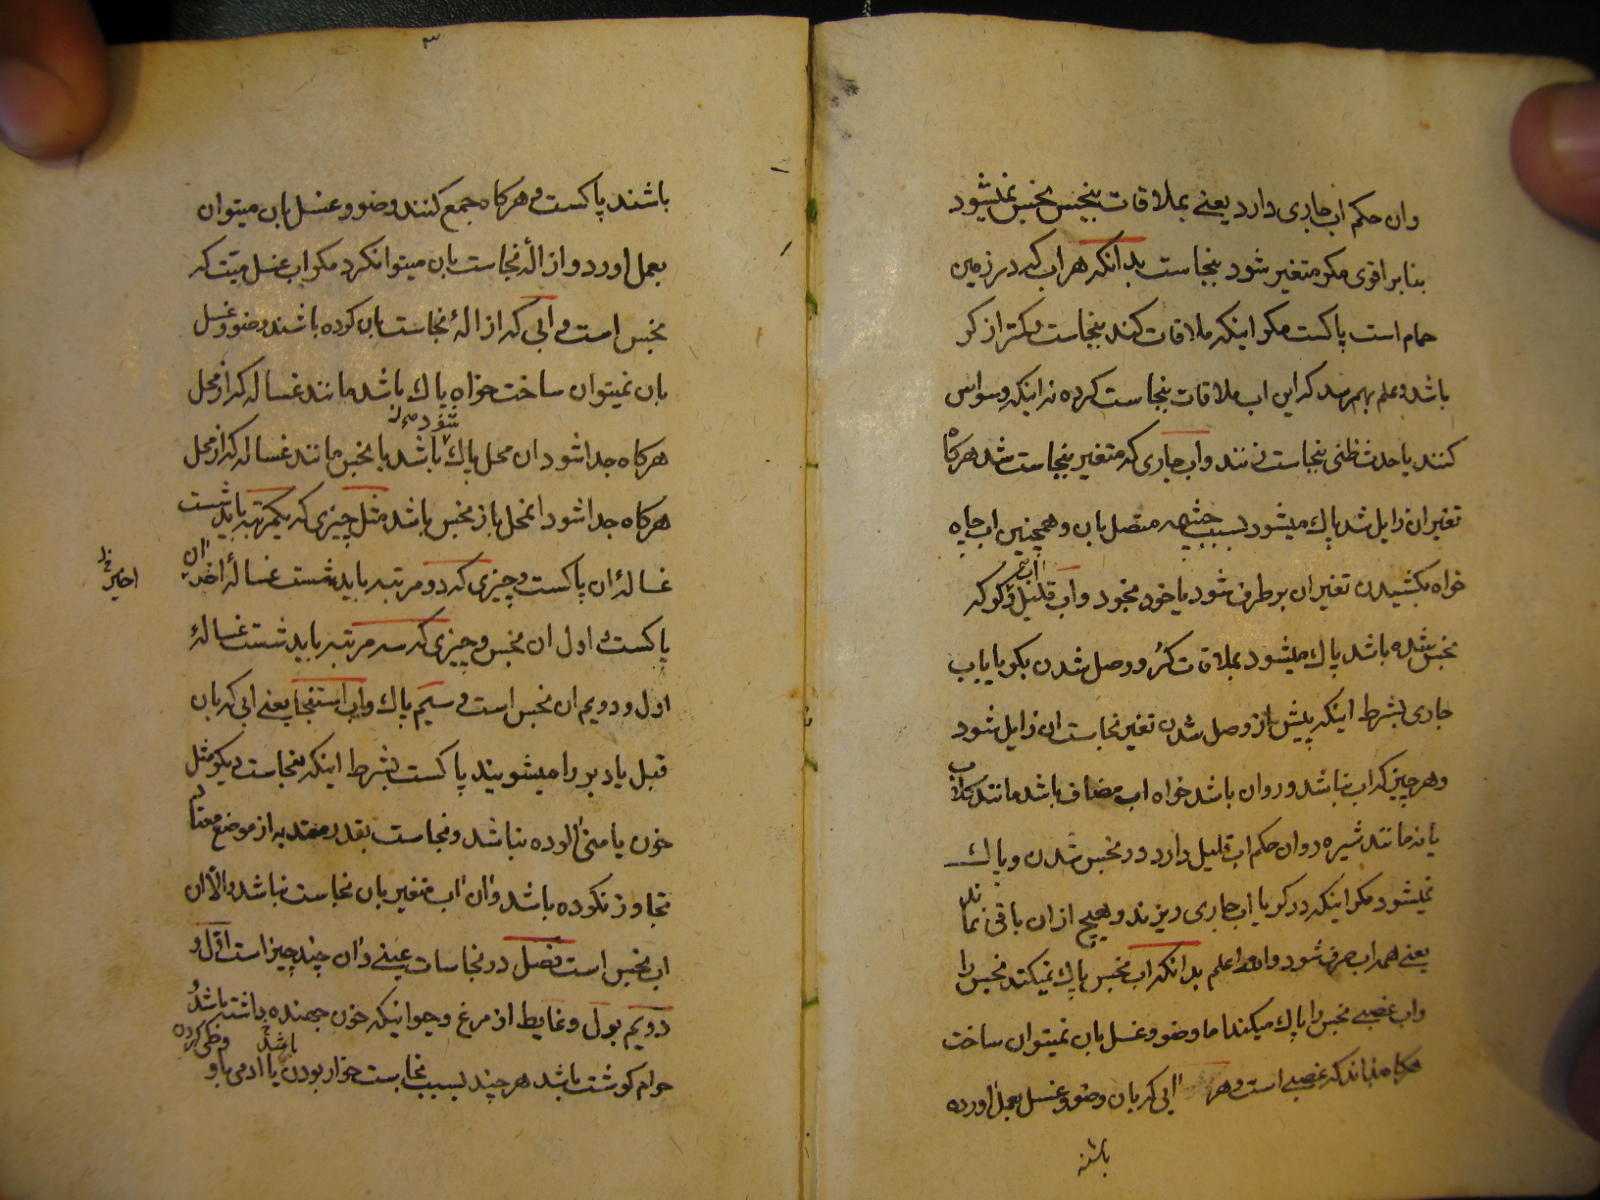 وان حکم اب جاری دارد یعنی بملاقات بنجس نجس نمیشود
بنابر اقوی مکر متغیر شود بنجاست بدانکه هر اب که در زمین
حمام است پاکست مکر اینکه ملاقات کند بنجاست و کمتر از کر
باشد و علم بهم رسد که این اب ملاقات بنجاست کرده نه اینکه وسواس
کنند یا حدث ظنی بنجاست زنند واب جاری که متغیر بنجاست شد هرکاه
تغیر ان زایل شد پاک میشود بسبب چشمه متصل بان و همچنین اب چاه
خواه بکشیدن تغیر ان برطرف شود یا خود بخود واب قلیل و کر که
نجس شده باشد پاک میشود بملاقات کر و وصل شدن بکر یا باب
جاری بشرط اینکه پیش از وصل شدن تغیر نجاست ان زایل شود
وهر چیز که اب نباشد و روان باشد خواه اب مضاف باشد مانند کلاب
یا نه مانند شیره روان حکم اب قلیل دارد در نجس شدن و پاک
نمیشود مکر اینکه در کر یا اب جاری ریزند و هیچ از ان باقی نماند
یعنی همه اب صرف شود والله اعلم بدانکه اب نجس پاک نمیکند نجس را
واب غصبی نجس را پاک میکند اما وضو و غسل بان نمیتوان ساخت
هرکاه بداند که غصبی است و هر ابی که بان وضو و غسل بعمل اورده
باشند
۳
باشند پاکست و هرکاه جمع کنند وضو و غسل بان میتوان
بعمل اورد و ازالهٔ نجاست بان میتوان کرد مکر اب غسل میت که
نجس است و ابی که ازالهٔ نجاست بان کرده باشند وضو و غسل
بان نمیتوان ساخت خواه پاک باشد مانند غساله که از محل
هرکاه جدا شود ان محل پاک باشد یا نجس مانند غساله که از محل
هرکاه جدا شود ان محل باز نجس باشد مثل چیزی که یکمرتبه باید شست
غسالهٔ ان پاکست و چیزی که دو مرتبه باید شست غسالهٔ اخر ان
اخیر
پاکست و اول ان نجس و چیزی که سه مرتبه باید شست غسالهٔ
اول و دویم ان نجس است و سیم پاک واب استنجا یعنی ابی که بان
قبل یا دبر را میشویند پاکست بشرط اینکه بنجاست دیکر مثل
خون یا منی الوده نباشد و نجاست بقدر معتد به از موضع معتاد
تجاوز نکرده باشد و ان اب متغیر بان نجاست نباشد والا ان
اب نجس است فصل در نجاسات عینی و ان چند چیز است اول و
دویم بول و غایط از مرغ و حیوانیکه خون جهنده داشته باشد و
حرام کوشت باشد هرچند بسبب نجاست خوار بودن یا ادمی باو
وطی کرده باشد